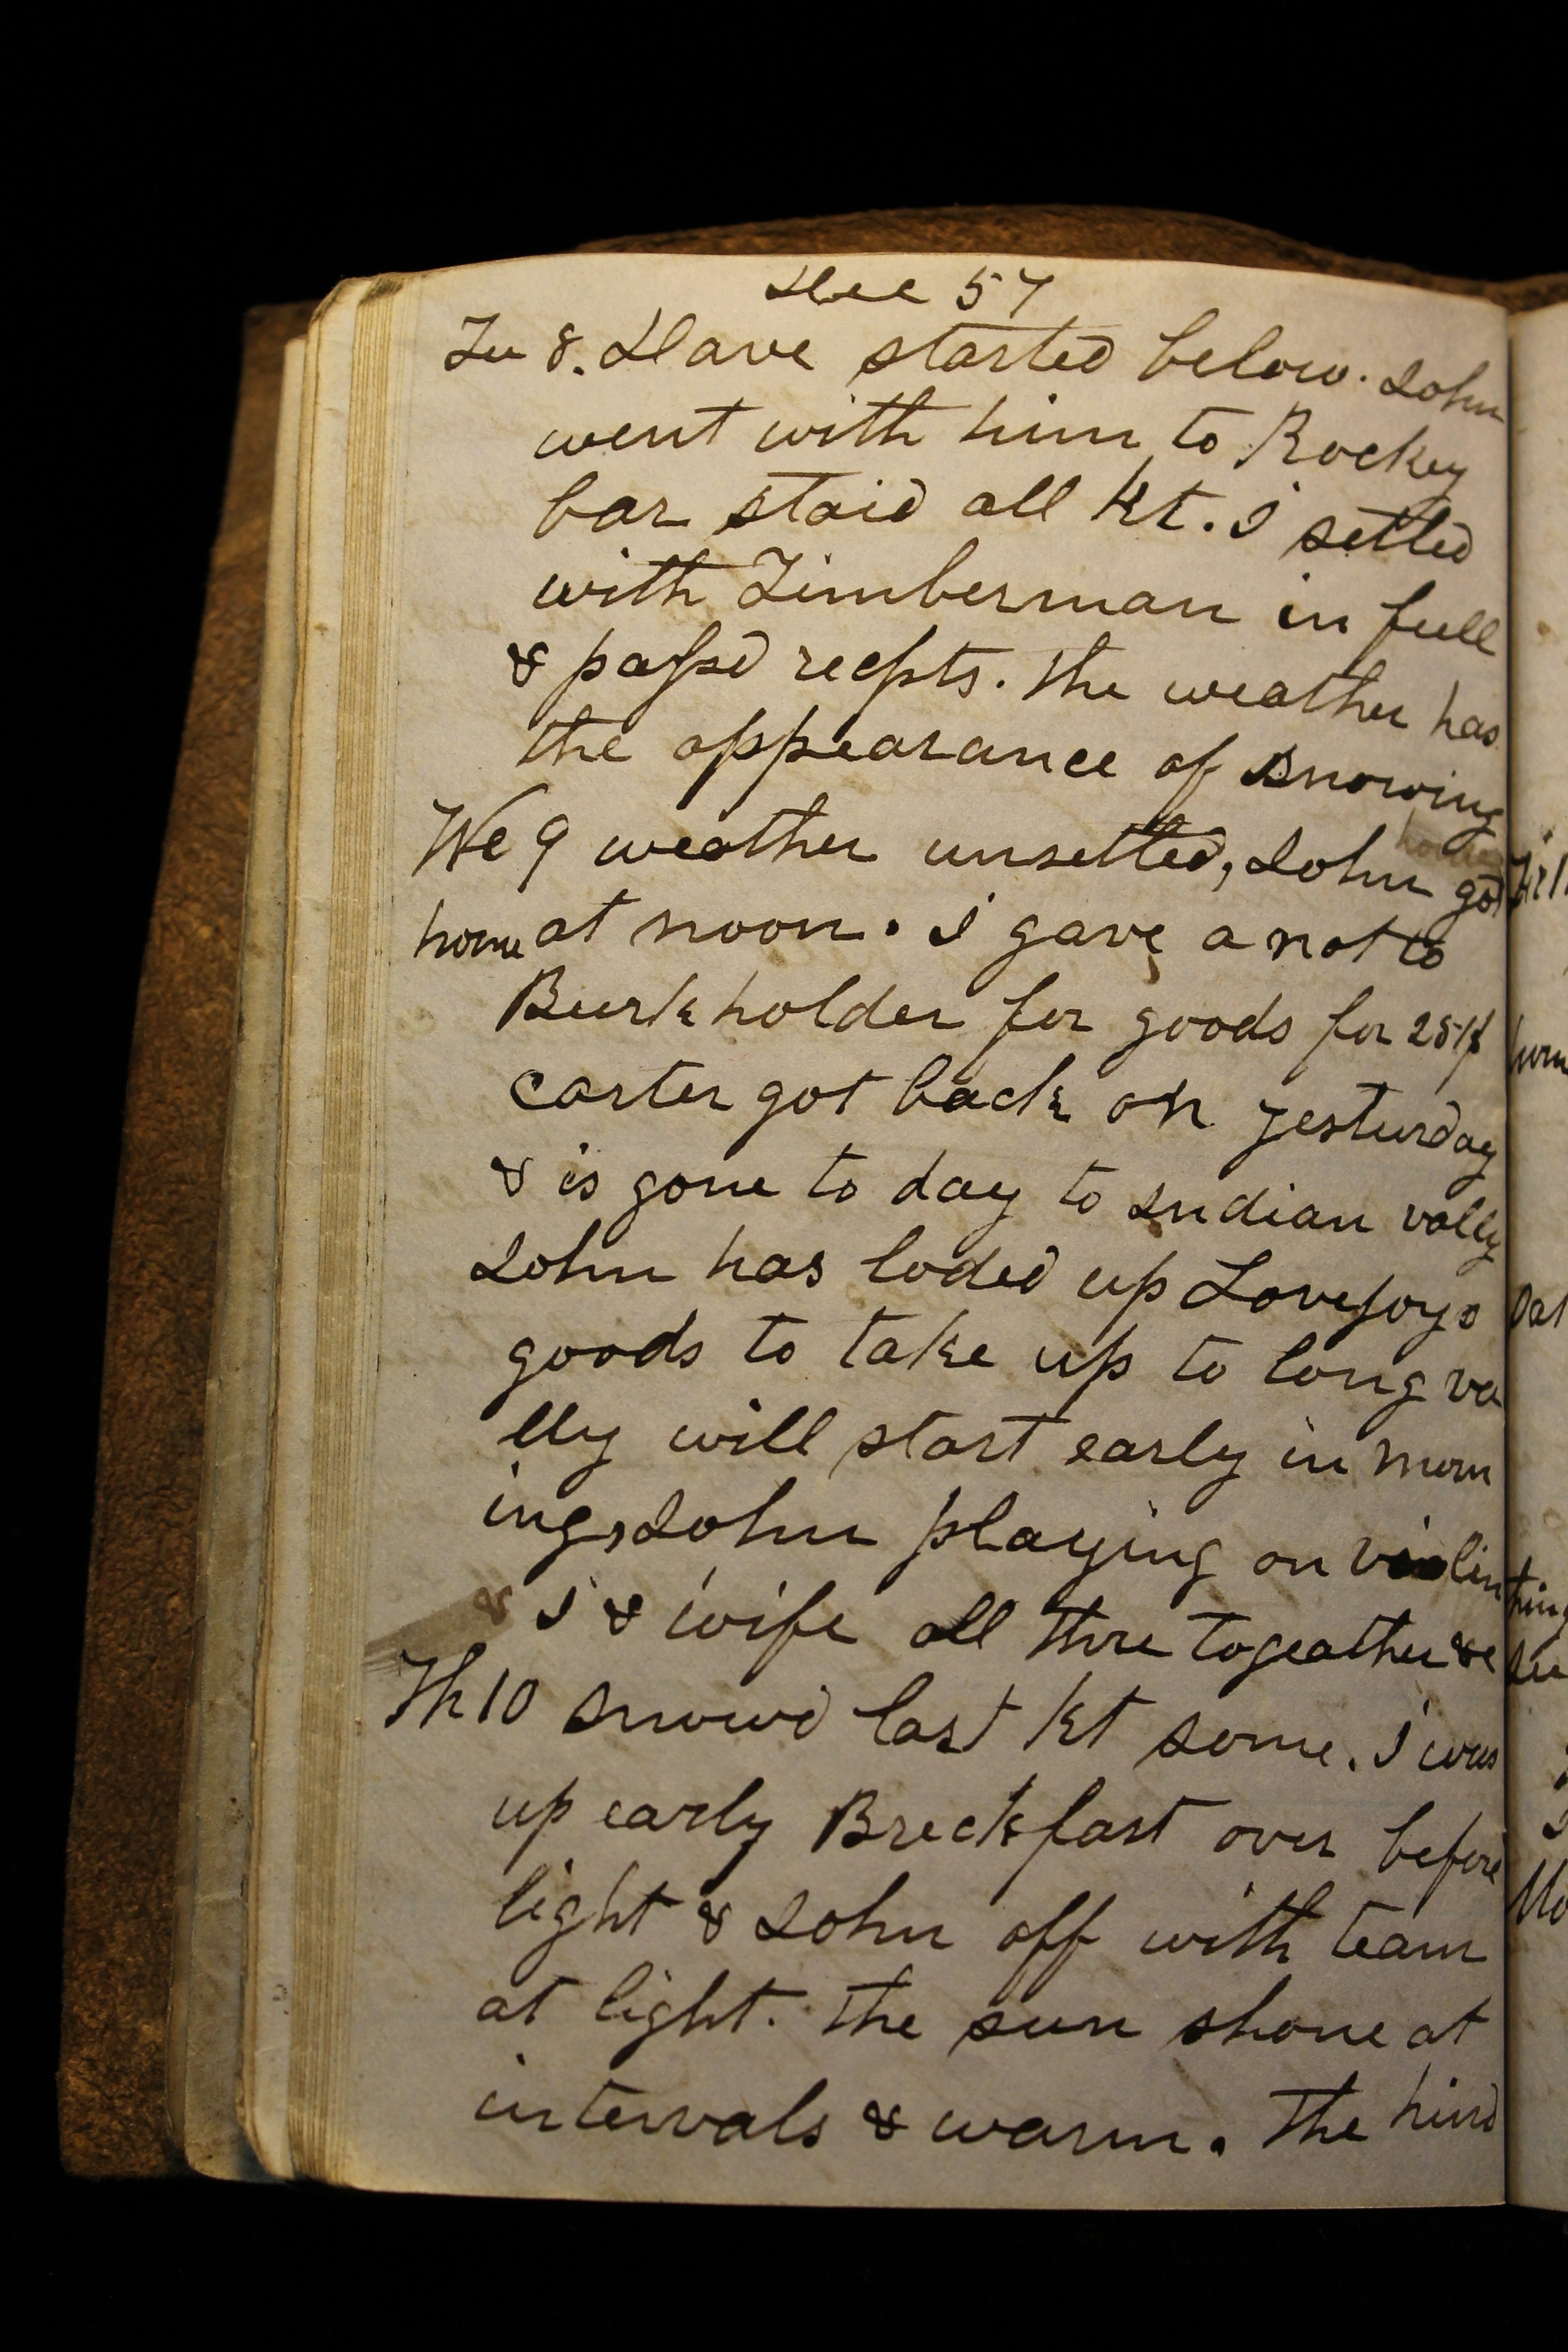 Dec 57
Tu 8. Dave started below. John
went with him to Rockey
bar staid all Nt. I settled
with Timberman in full
& passd recpts. The weather has
the appearance of snowing
We 9 weather unsettled, John got
home at noon. I gave a not to
Burkholder for goods for
carter got back on yesturday
& is gone to day to Indian vally
John has loded up Lovejoys
goods to take up to long va
lly will start early in morn
ing, John playing on violin
& I & wife all thre togeather &c
Th 10 snowd last Nt some. I was
up early Breckfast over before
light & John off with team
at light. The sun shone at
intervals & warm. The hind